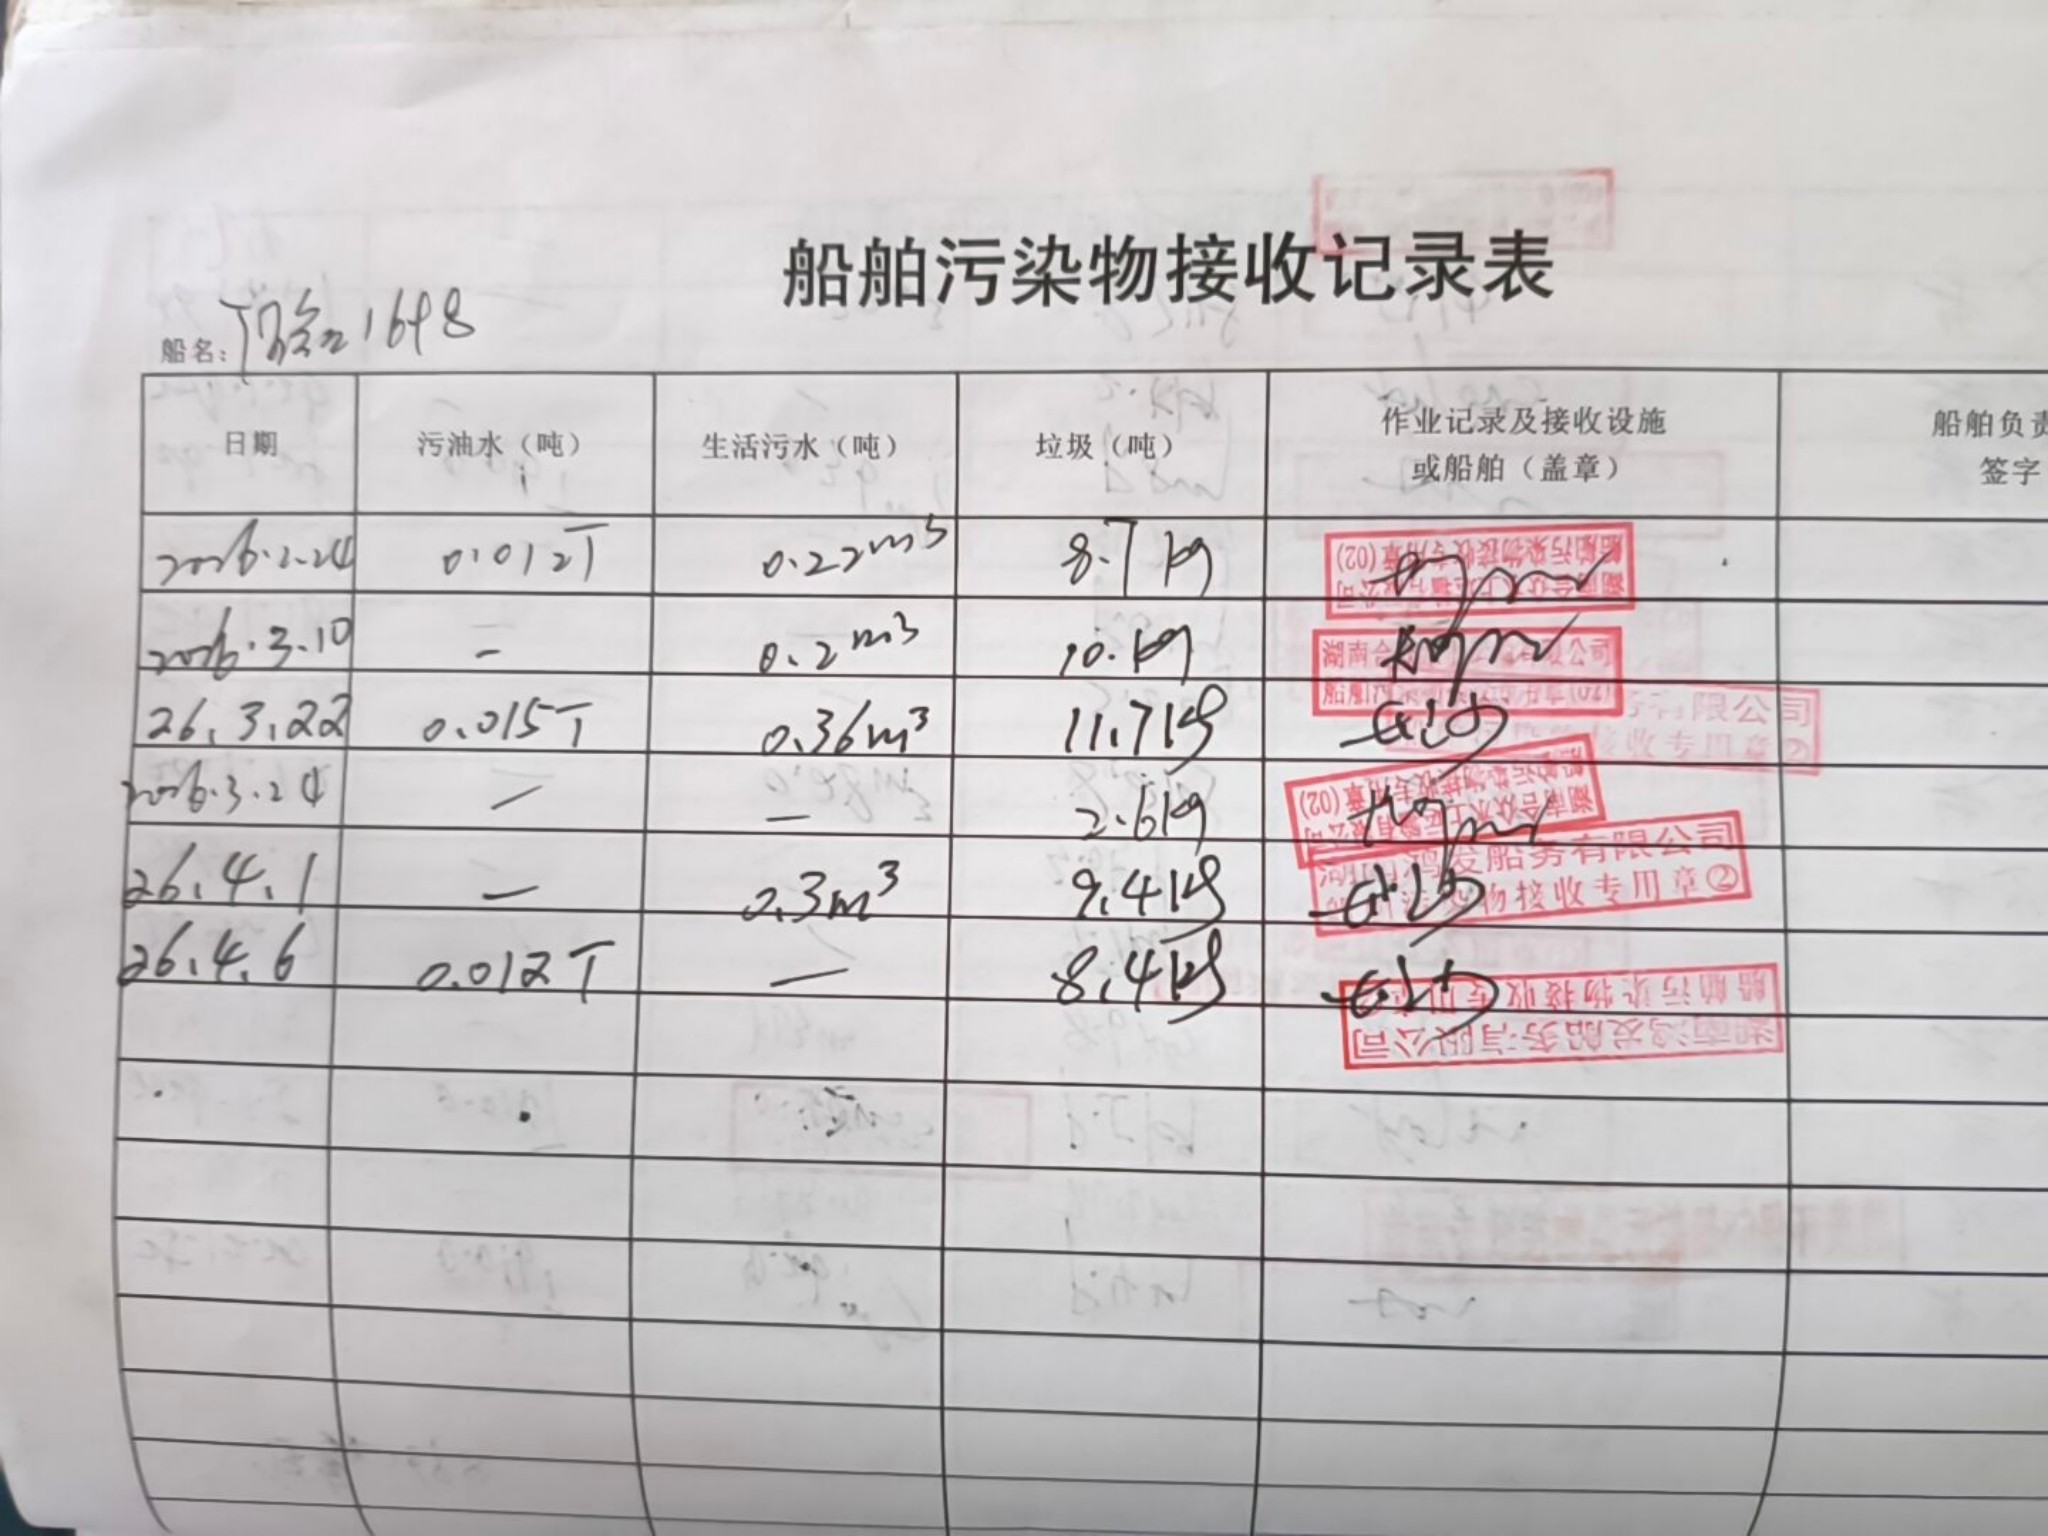 船舶污染物接收记录表
船名: 1698
日期 污油水（吨） 生活污水（吨） 垃圾（吨） 作业记录及接收设施或船舶（盖章） 船舶负责 签字
2026.2.24 0.012T 0.22m³ 8.7kg 船舶污染物接收专用章(02)
2026.3.10 - 0.2m³ 10.kg 湖南合 公司
26.3.22 0.015T 0.36m³ 11.7kg 有限公司 接收专用章②
2026.3.24 — — 2.6kg 湖南合众水上 公司 船舶污染物接收专用章(02)
26.4.1 — 0.3m³ 9.4kg 鸿发船务有限公司 物接收专用章②
26.4.6 0.012T — 8.4kg 湖南鸿发船务有限公司 船舶污染物接收专用章